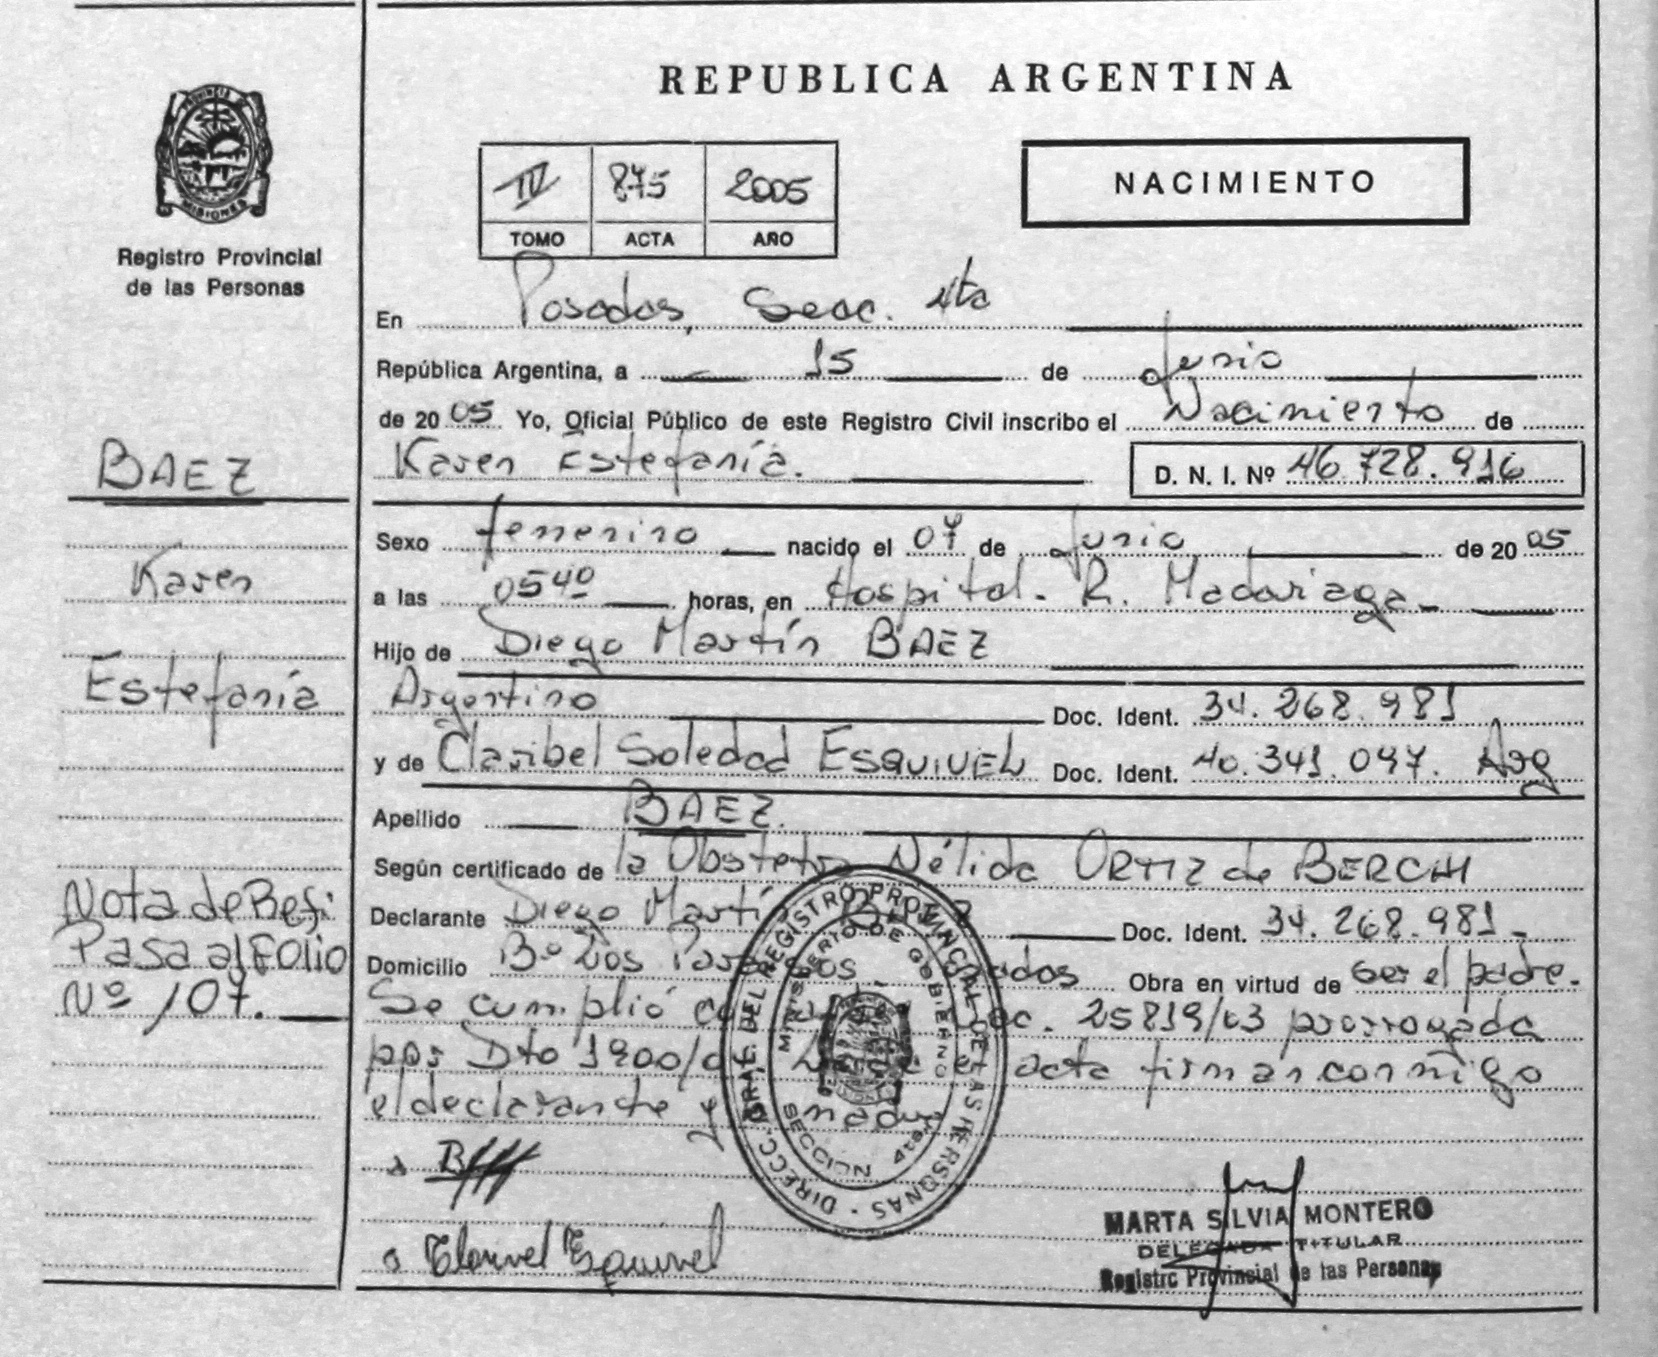 REPUBLICA ARGENTINA
MISIONES
Registro Provincial
de las Personas
IV 875 2005
TOMO ACTA AÑO
NACIMIENTO
En Posadas, Secc. 4ta
República Argentina, a 15 de Junio
de 2005 Yo, Oficial Público de este Registro Civil inscribo el Nacimiento de
Karen Estefanía. D. N. I. Nº 46.728.916
BAEZ
Karen
Estefanía
Sexo femenino nacido el 07 de Junio de 2005
a las 0540 horas, en Hospital. R. Madariaga
Hijo de Diego Martín BAEZ
Argentino Doc. Ident. 34.268.981
y de Claribel Soledad ESQUIVEL Doc. Ident. 40.341.047. Arg
Apellido BAEZ.
Según certificado de la Obstetra Nélida ORTIZ de BERCHI
Declarante Diego Martín Doc. Ident. 34.268.981
Domicilio Bº Los Obra en virtud de ser el padre.
Se cumplió 25819/03 prorrogada
por Dto 1900/ acta firman conmigo
el declarante y madre
Nota de Ref:
Pasa al Folio
Nº 107.
DIRECC. GRAL. DEL REGISTRO PROVINCIAL DE LAS PERSONAS
MINISTERIO DE GOBIERNO
SECCION 4ta
MARTA SILVIA MONTERO
DELEGADA TITULAR
Registro Provincial de las Personas